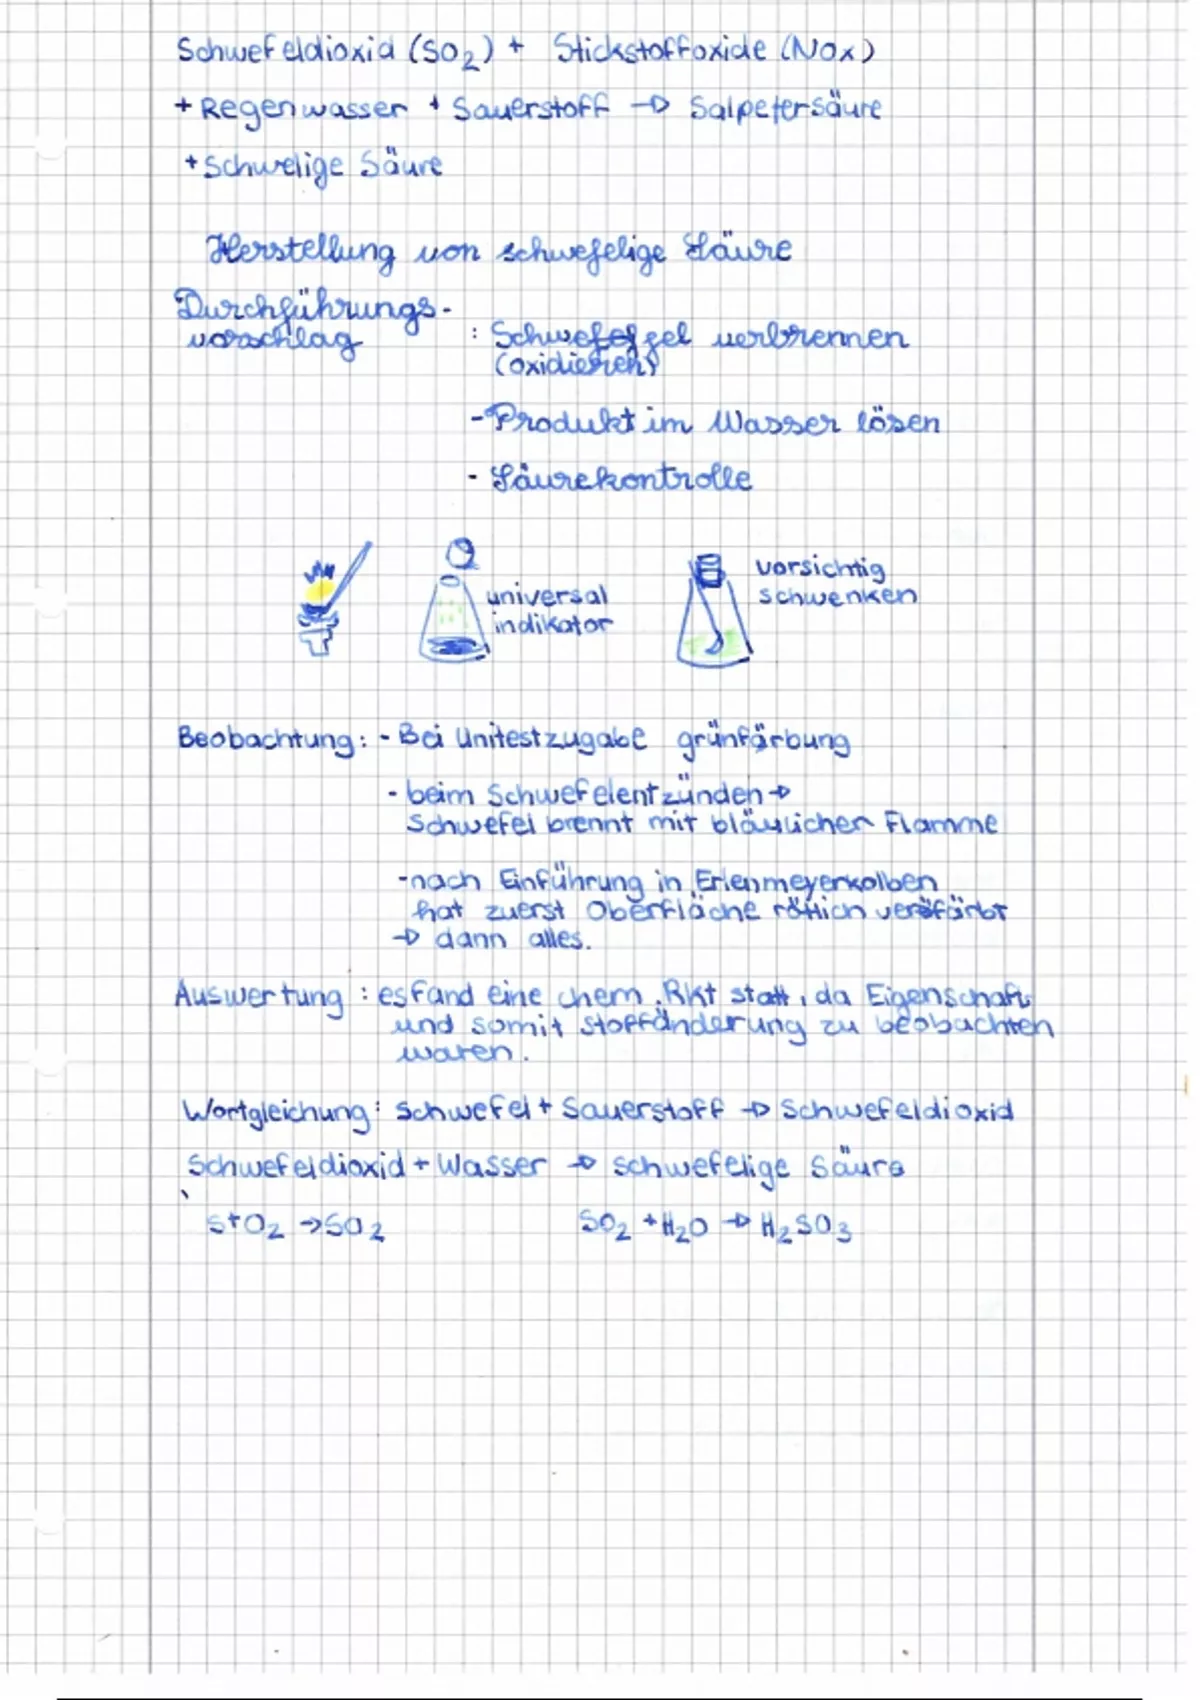 Schwefeldioxid (SO₂) + Stickstoffoxide (NOx)
+ Regenwasser + Sauerstoff → Salpetersäure
+ Schwelige Säure
Herstellung von schwefelige Säure
Durchführungs-
vorschlag
: Schwefel verbrennen
(oxidieren)
- Produkt im Wasser lösen
- Säurekontrolle
universal
indikator
vorsichtig
schwenken
Beobachtung: - Bei Unitestzugabe grünfärbung
- beim Schwefelentzünden →
Schwefel brennt mit bläulicher Flamme
- nach Einführung in Erlenmeyerkolben
hat zuerst Oberfläche rötlich verfärbt
→ dann alles.
Auswertung : es fand eine chem. Rkt statt, da Eigenschaft
und somit stoffänderung zu beobachten
waren.
Wortgleichung: Schwefel + Sauerstoff → Schwefeldioxid
Schwefeldioxid + Wasser → schwefelige Säure
S + O₂ → SO₂
SO₂ + H₂O → H₂SO₃